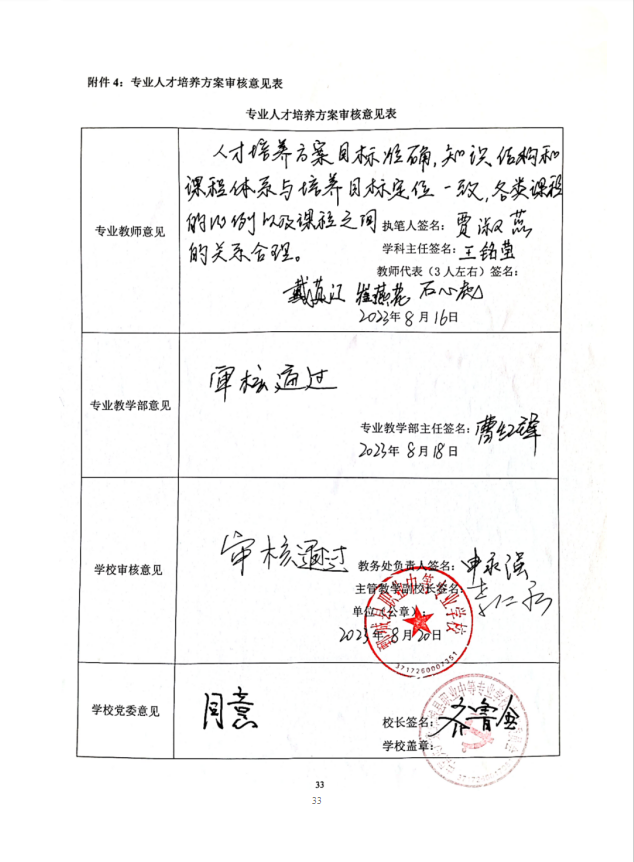 附件 4：专业人才培养方案审核意见表
专业人才培养方案审核意见表
专业教师意见
人才培养方案目标准确,知识结构和
课程体系与培养目标定位一致,各类课程
的比例以及课程之间
的关系合理。
执笔人签名：贾淑燕
学科主任签名：王铭莹
教师代表（3 人左右）签名：
2023年 8 月 16日
专业教学部意见
审核通过
专业教学部主任签名：曹红锋
2023年 8 月 18 日
学校审核意见
审核通过
教务处负责人签名：申永强
主管教学副校长签名
单位（公章）：
2023年 8 月 20 日
职业中等专业学校
学校党委意见
同意
校长签名：齐鲁金
学校盖章：
33
33